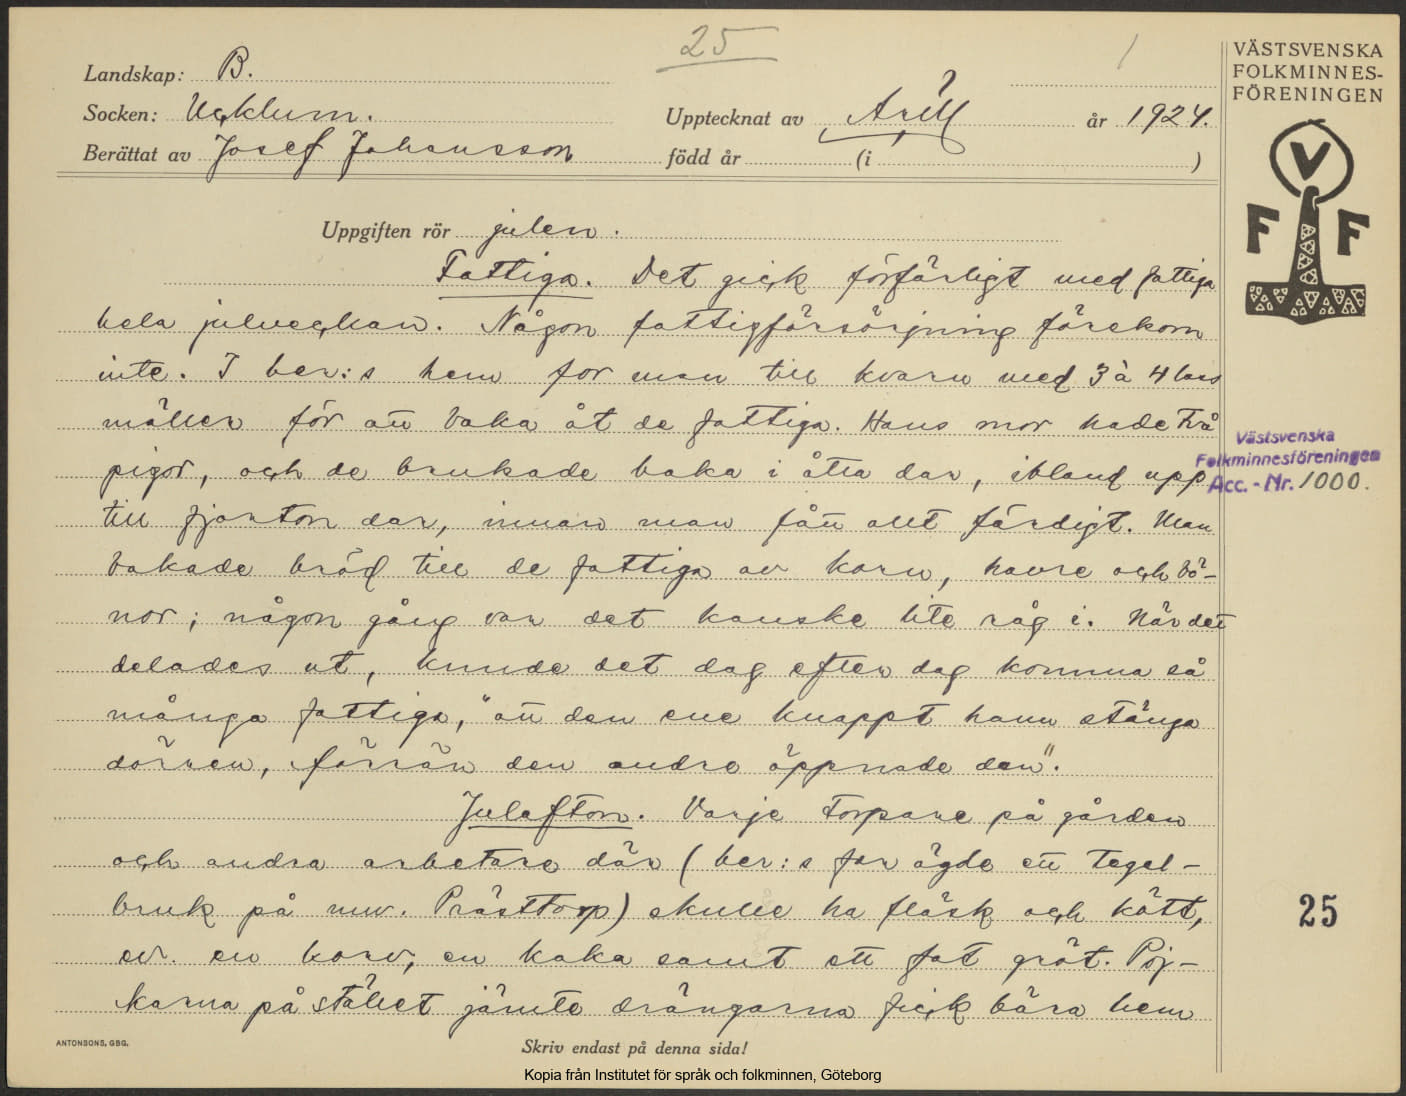 25
1
Landskap: B.
Socken: Ucklum.
Upptecknat av Arill år 1924.
Berättat av Josef Johansson född år (i )
VÄSTSVENSKA
FOLKMINNES-
FÖRENINGEN
V
F F
Uppgiften rör julen.
Fattiga. Det gick förfärligt med fattiga
hela julveckan. Någon fattigförsörjning förekom
inte. I ber:s hem for man till kvarn med 3 à 4 lass
mäller för att baka åt de fattiga. Hans mor hade två
pigor, och de brukade baka i åtta dar, ibland upp
till fjorton dar, innan man fått allt färdigt. Man
bakade bröd till de fattiga av korn, havre och bö-
nor; någon gång var det kanske lite råg i. När det
delades ut, kunde det dag efter dag komma så
många fattiga, "att den ene knappt hann stänga
dörren, förrän den andre öppnade den".
Julafton. Varje torpare på gården
och andra arbetare där (ber:s far ägde ett tegel-
bruk på nuv. Prästtorp) skulle ha fläsk och kött,
ev. en korv, en kaka samt ett fat gröt. Poj-
karna på stället jämte drängarna fick bära hem
Västsvenska
Folkminnesföreningen
Acc.-Nr. 1000.
25
ANTONSONS, GBG.
Skriv endast på denna sida!
Kopia från Institutet för språk och folkminnen, Göteborg